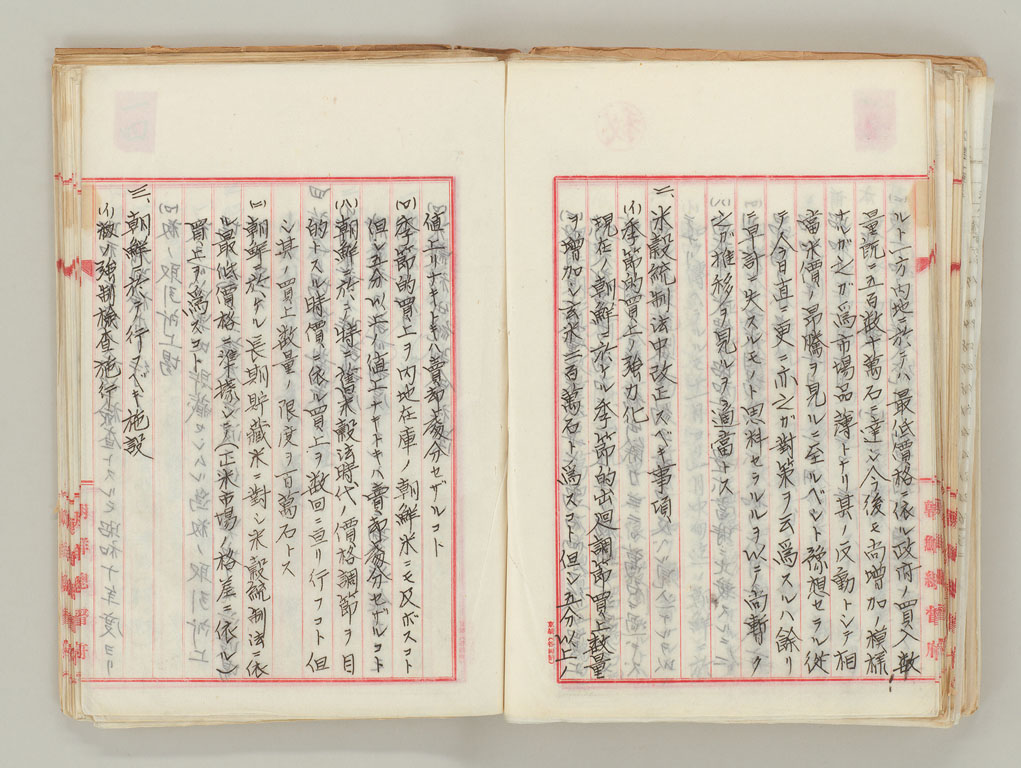 ルト一方内地ニ於テハ最低價格ニ依ル政府ノ買入數
量既ニ五百數十萬石ニ達シ今後モ尚增加ノ模樣
ナルガ之ガ爲市場品薄トナリ其ノ反動トシテ相
當米價ノ昂騰ヲ見ルニ至ルベシト豫想セラル從
テ今日直ニ更ニ亦之ガ對策ヲ云爲スルハ餘リ
ニ早計ニ失スルモノト思料セラルルヲ以テ尚暫ク
之ガ推移ヲ見ルヲ適當トス
二、米穀統制法中改正スベキ事項
(イ)季節的買上ノ強力化
現在ノ朝鮮ニ於ケル季節的出廻調節買上數量
ヲ增加シ玄米三百萬石ト爲スコト但シ五分以上ノ
値上リナキトキハ賣却處分セザルコト
(ロ)季節的買上ヲ內地在庫ノ朝鮮米ニモ及ボスコト
但シ五分以上ノ値上ナキトキハ賣却處分セザルコト
(ハ)朝鮮ニ於テ特ニ舊米穀法時代ノ價格調節ヲ目
的トスル時價ニ依ル買上ヲ數回ニ亘リ行フコト但
シ其ノ買上數量ノ限度ヲ百萬石トス
(ニ)朝鮮ニ於ケル長期貯藏米ニ對シ米穀統制法ニ依
ル最低價格ニ準據シ(正米市場ノ格差ニ依ル)
買上ヲ爲スコト
三、朝鮮ニ於テ行フベキ施設
(イ)籾ノ強制檢查施行
朝鮮總督府
朝鮮總督府